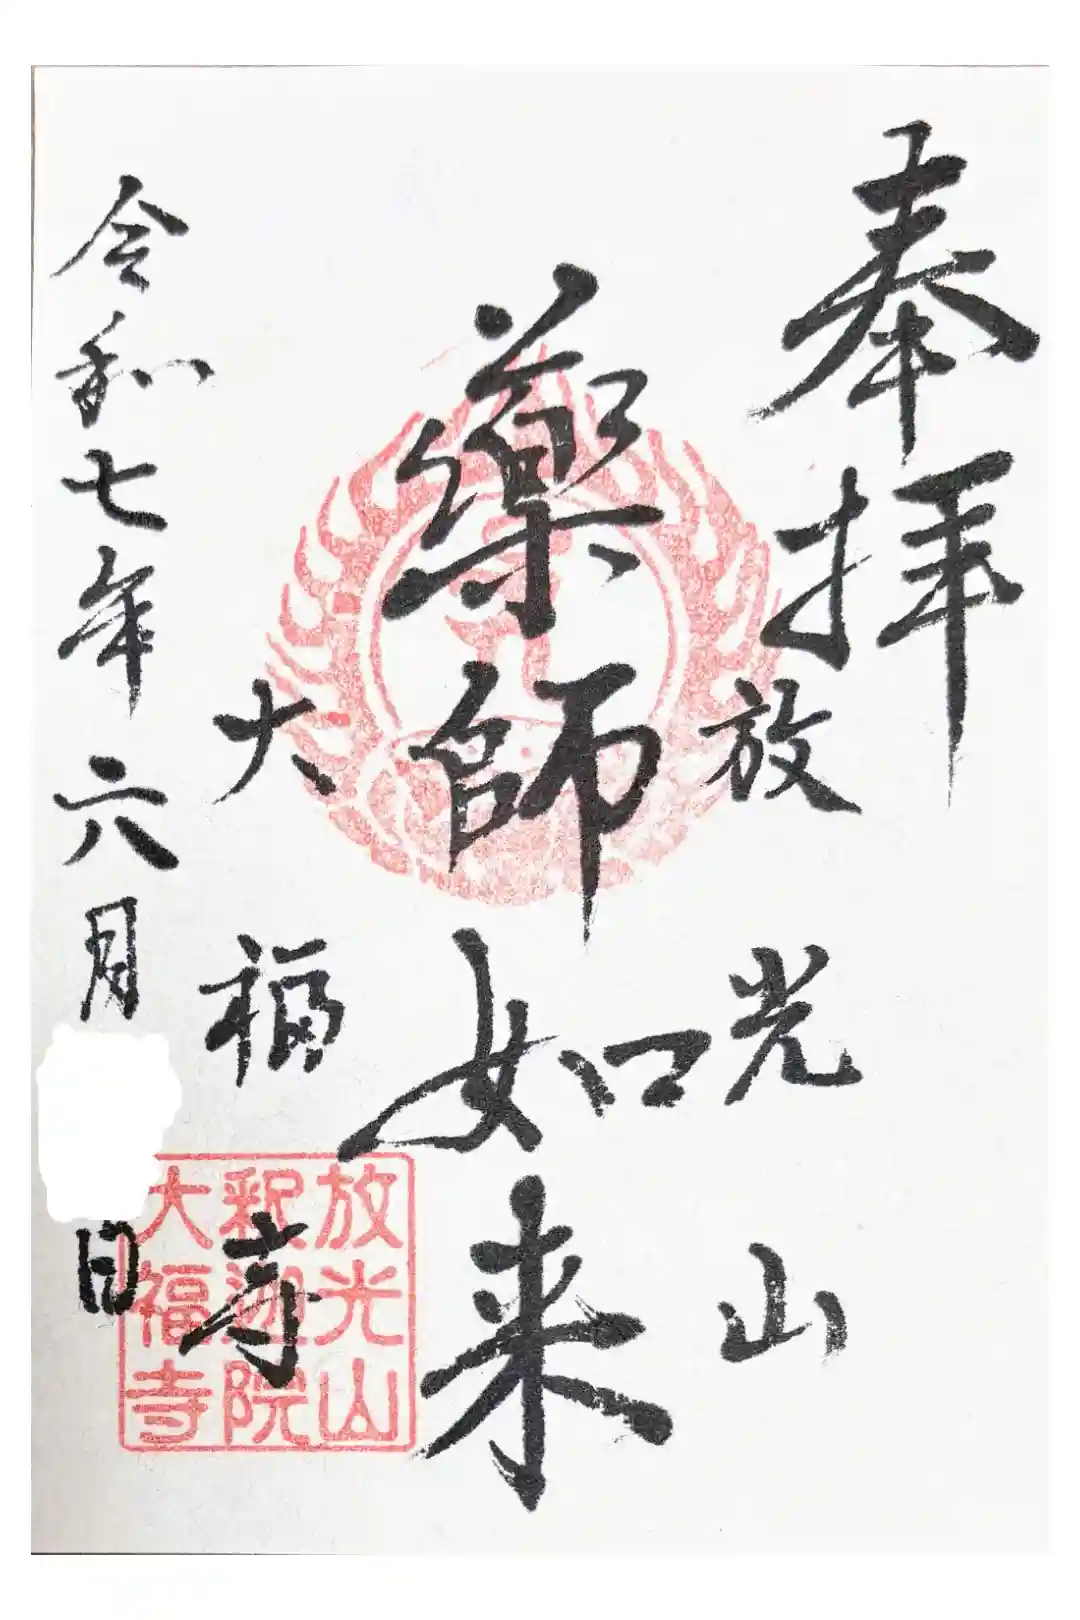 奉拝
放光山
薬師如来
大福寺
令和七年六月
日
放光山
釈迦院
大福寺